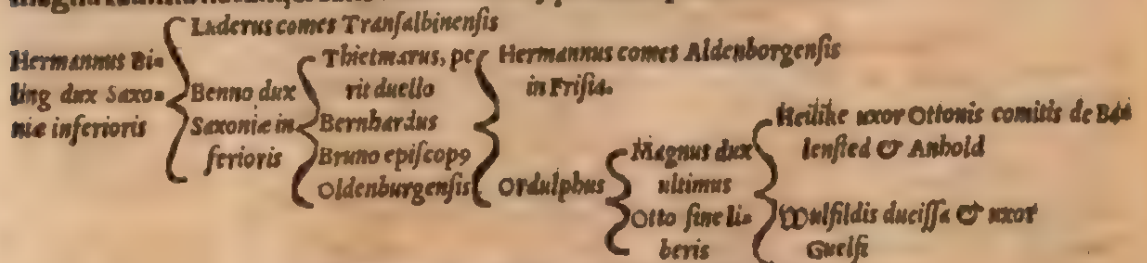 Hermannus Bi-
ling dux Saxo-
niæ inferioris
Luderus comes Transalbinensis
Benno dux
Saxoniæ in
ferioris
Thietmarus, pe
rit duello
Bernhardus
Bruno episcopꝰ
Oldenburgensis
Hermannus comes Aldenborgensis
in Frisia.
Ordulphus
Magnus dux
ultimus
Otto sine li-
beris
Heilike uxor Ottonis comitis de Bal
lensted & Anhold
Wulfildis ducissa & uxor
Guelfi